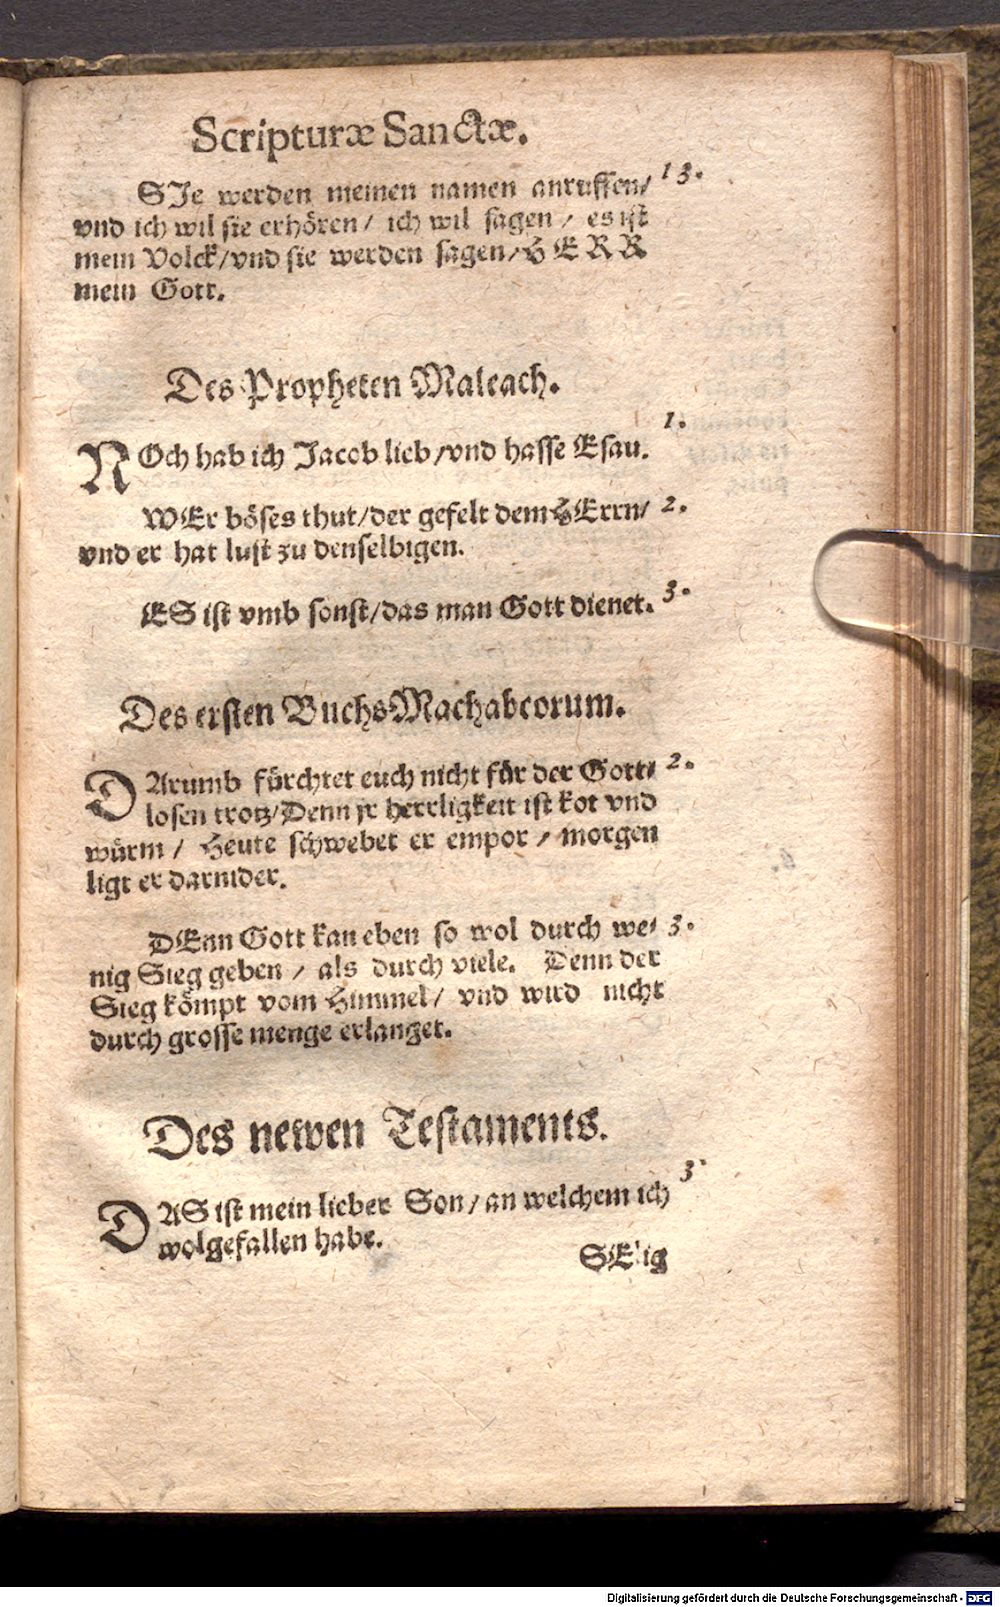 Scripturæ Sanctæ.
SIe werden meinen namen anruffen/ 13.
vnd ich wil sie erhören/ ich wil sagen / es ist
mein Volck/vnd sie werden sagen/HERR
mein Gott.
Des Propheten Maleach.
1.
NOch hab ich Jacob lieb/vnd hasse Esau.
WEr böses thut/der gefelt dem HErrn/ 2.
vnd er hat lust zu denselbigen.
ES ist vmb sonst/das man Gott dienet. 3.
Des ersten Buchs Machabeorum.
DArumb fürchtet euch nicht für der Gott/ 2.
losen trotz/Denn jr herrligkeit ist kot vnd
würm / Heute schwebet er empor / morgen
ligt er darnider.
DEnn Gott kan eben so wol durch we/ 3.
nig Sieg geben / als durch viele. Denn der
Sieg kömpt vom Himmel/ vnd wird nicht
durch grosse menge erlanget.
Des newen Testaments.
3
DAS ist mein lieber Son/an welchem ich
wolgefallen habe.
SElig
Digitalisierung gefördert durch die Deutsche Forschungsgemeinschaft - DFG